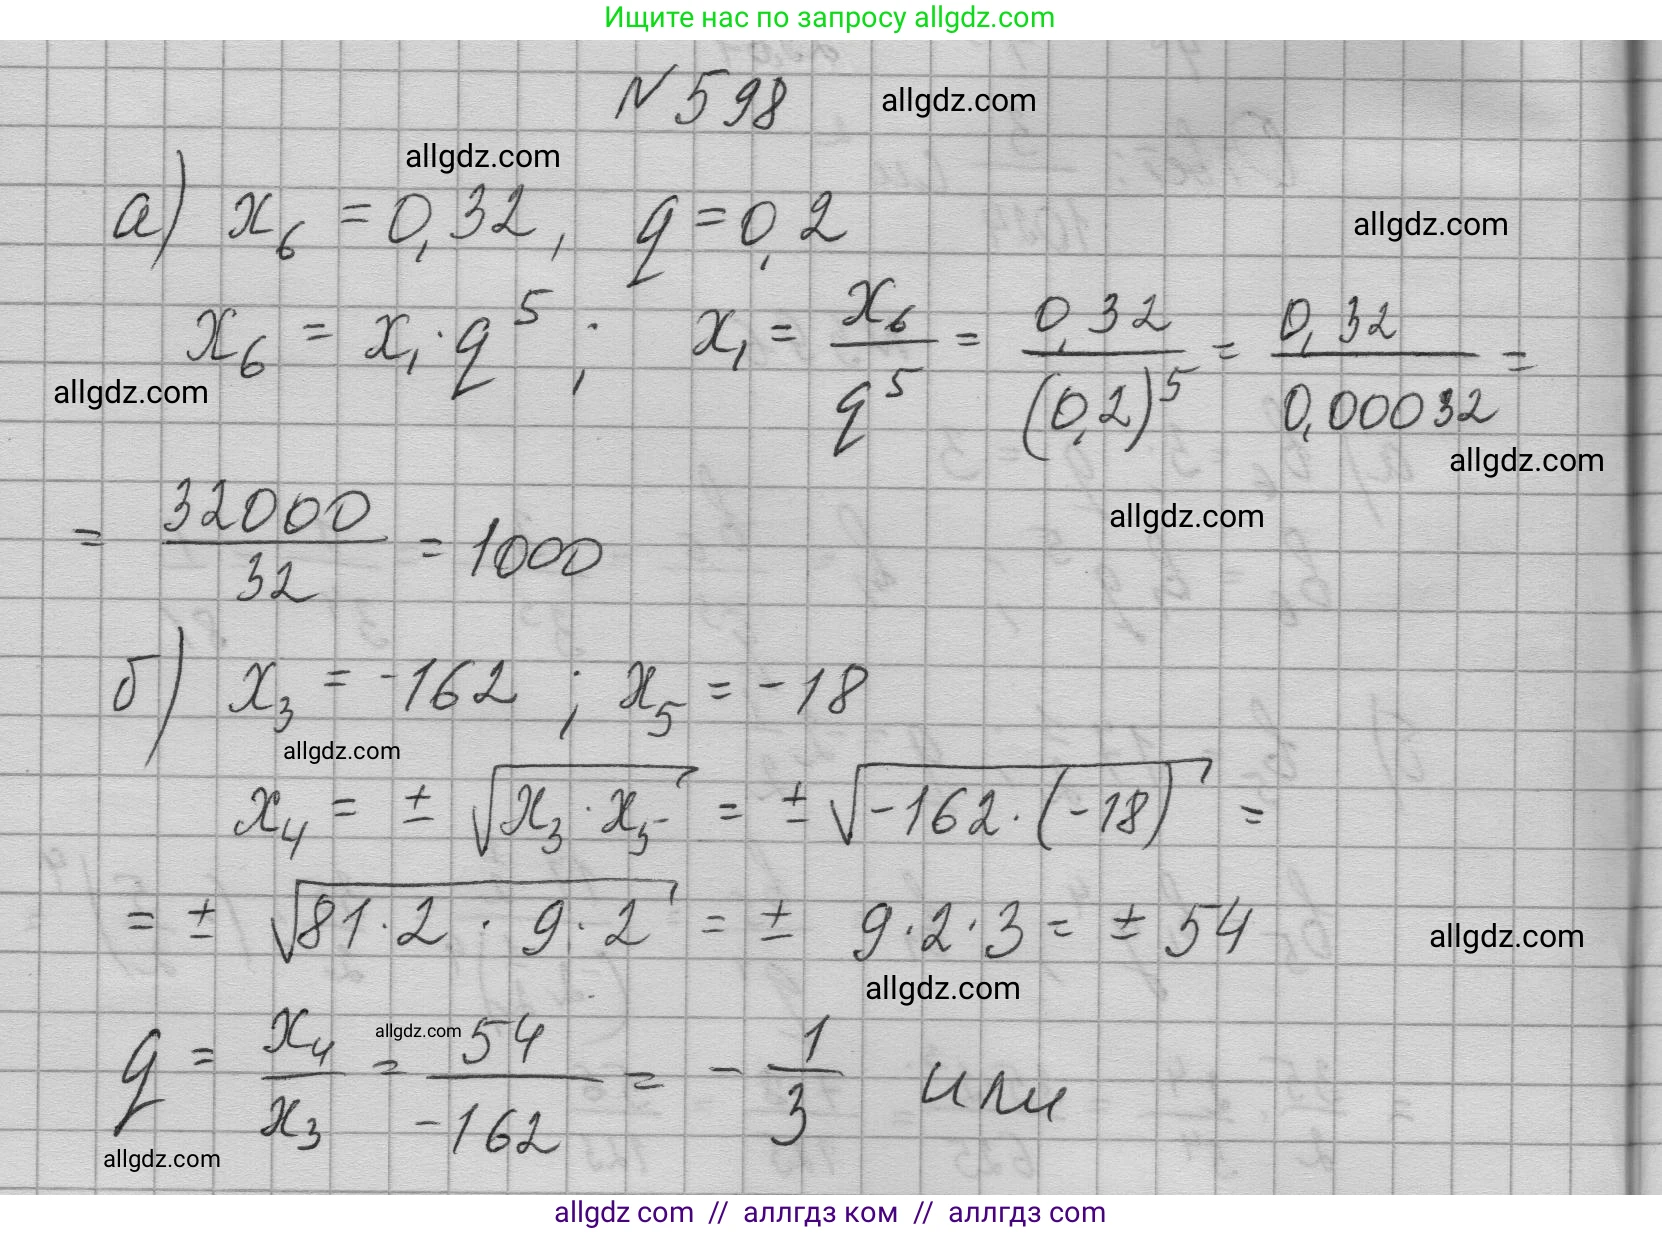 Ищите нас по запросу allgdz.com
N 598
allgdz.com
allgdz.com
а) x₆ = 0,32, q = 0,2
allgdz.com
x₆ = x₁ · q⁵; x₁ = x₆/q⁵ = 0,32/(0,2)⁵ = 0,32/0,00032 =
allgdz.com
allgdz.com
allgdz.com
= 32000/32 = 1000
б) x₃ = -162; x₅ = -18
allgdz.com
x₄ = ± √(x₃ · x₅) = ± √(-162 · (-18)) =
= ± √(81 · 2 · 9 · 2) = ± 9 · 2 · 3 = ± 54
allgdz.com
allgdz.com
allgdz.com
q = x₄/x₃ = 54/-162 = - 1/3 или
allgdz.com
allgdz com // аллгдз ком // аллгдз com